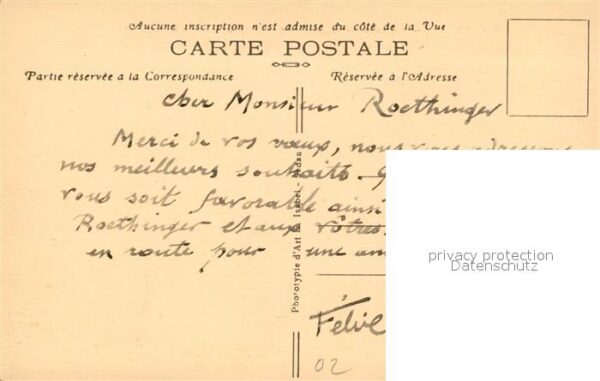 Aucune inscription n'est admise du côté de la Vue
CARTE POSTALE
Partie réservée à la Correspondance
Réservée à l'Adresse
Cher Monsieur Roethinger
Merci de vos vœux, nous vous adressons
nos meilleurs souhaits.
vous soit favorable ainsi
Roethinger et aux vôtres.
en route pour une
Phototypie d'Art
Isabel - Sedan
privacy protection
Datenschutz
02